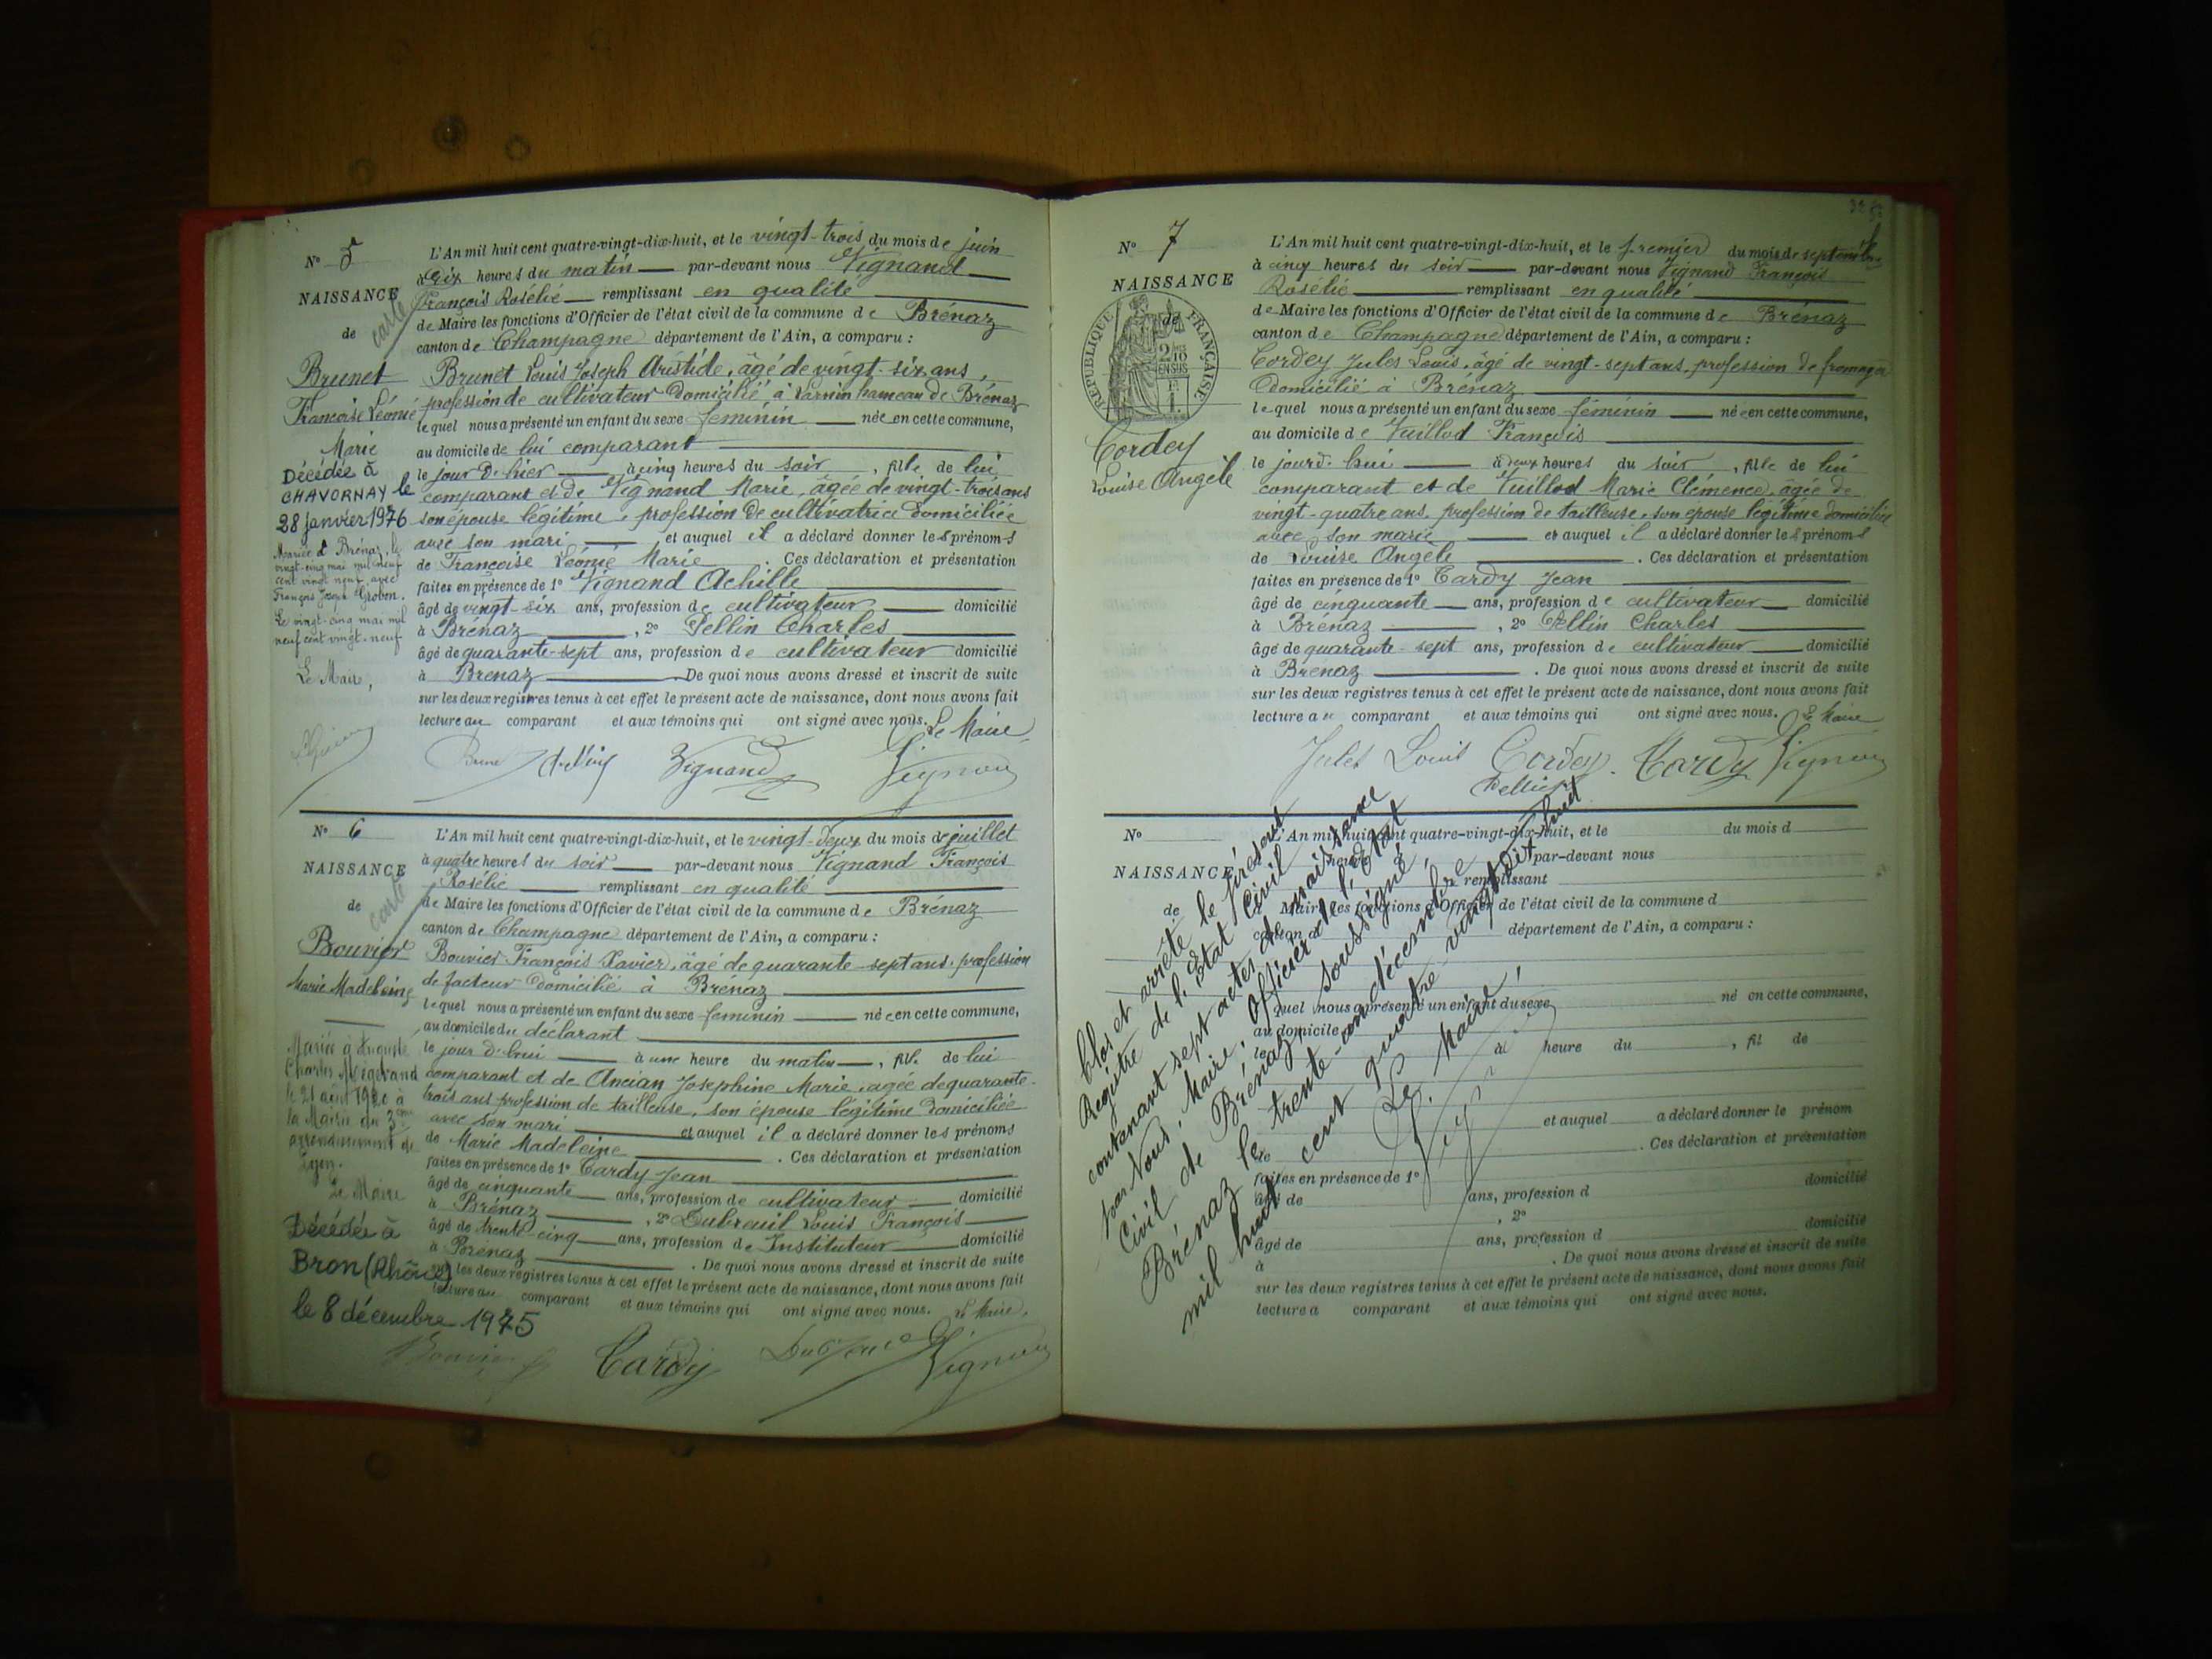 N° 5
NAISSANCE
de
carte
Brunet
Françoise Léonie
Marie
Décédée à
CHAVORNAY le
28 janvier 1976
Mariée à Brénaz, le
vingt-cinq mai mil neuf
cent vingt neuf avec
François Joseph Grobon.
Le vingt-cinq mai mil
neuf cent vingt-neuf
Le Maire,
L'An mil huit cent quatre-vingt-dix-huit, et le vingt-trois du mois de juin
à dix heures du matin par-devant nous Vignand
François Rosélié remplissant en qualité
de Maire les fonctions d'Officier de l'état civil de la commune de Brénaz
canton de Champagne département de l'Ain, a comparu :
Brunet Louis Joseph Aristide, âgé de vingt-six ans,
profession de cultivateur domicilié, à hameau de Brénaz
lequel nous a présenté un enfant du sexe féminin née en cette commune,
au domicile de lui comparant
le jour d'hier à cinq heures du soir, fille de lui
comparant et de Vignand Marie, âgée de vingt-trois ans
son épouse légitime, profession de cultivatrice domiciliée
avec son mari et auquel il a déclaré donner les prénoms
de Françoise Léonie Marie. Ces déclaration et présentation
faites en présence de 1° Vignand Achille
âgé de vingt-six ans, profession de cultivateur domicilié
à Brénaz, 2° Pellin Charles
âgé de quarante-sept ans, profession de cultivateur domicilié
à Brénaz De quoi nous avons dressé et inscrit de suite
sur les deux registres tenus à cet effet le présent acte de naissance, dont nous avons fait
lecture au comparant et aux témoins qui ont signé avec nous. Le Maire
Brunet Vignand Vignand
N° 6
NAISSANCE
de
carte
Bouvier
Marie Madeleine
Mariée à Auguste
Charles
le 21 août 1920 à
la Mairie du 3ème
arrondissement de
Lyon.
Le Maire
Décédée à
Bron (Rhône)
le 8 décembre 1975
L'An mil huit cent quatre-vingt-dix-huit, et le vingt-deux du mois de juillet
à quatre heures du soir par-devant nous Vignand François
Rosélié remplissant en qualité
de Maire les fonctions d'Officier de l'état civil de la commune de Brénaz
canton de Champagne département de l'Ain, a comparu :
Bouvier François Xavier, âgé de quarante-sept ans, profession
de facteur domicilié à Brénaz
lequel nous a présenté un enfant du sexe féminin née en cette commune,
au domicile du déclarant
le jour d'hui à une heure du matin, fille de lui
comparant et de Ancian Joséphine Marie, âgée de quarante-
trois ans profession de tailleuse, son épouse légitime domiciliée
avec son mari et auquel il a déclaré donner les prénoms
de Marie Madeleine. Ces déclaration et présentation
faites en présence de 1° Cardy Jean
âgé de cinquante ans, profession de cultivateur domicilié
à Brénaz, 2° Dubreuil Louis François
âgé de trente-cinq ans, profession de Instituteur domicilié
à Brénaz. De quoi nous avons dressé et inscrit de suite
sur les deux registres tenus à cet effet le présent acte de naissance, dont nous avons fait
lecture au comparant et aux témoins qui ont signé avec nous. Le Maire,
Bouvier Cardy Dubreuil Vignand
N° 7
NAISSANCE
de
RÉPUBLIQUE FRANÇAISE
2/10 EN SUS
Cordey
Louise Angèle
L'An mil huit cent quatre-vingt-dix-huit, et le premier du mois de septembre
à cinq heures du soir par-devant nous Vignand François
Rosélié remplissant en qualité
de Maire les fonctions d'Officier de l'état civil de la commune de Brénaz
canton de Champagne département de l'Ain, a comparu :
Cordey Jules Louis, âgé de vingt-sept ans, profession de fromager
domicilié à Brénaz
lequel nous a présenté un enfant du sexe féminin née en cette commune,
au domicile de Vuillod François
le jour d'hui à deux heures du soir, fille de lui
comparant et de Vuillod Marie Clémence, âgée de
vingt-quatre ans, profession de tailleuse, son épouse légitime domiciliée
avec son mari et auquel il a déclaré donner les prénoms
de Louise Angèle. Ces déclaration et présentation
faites en présence de 1° Cardy Jean
âgé de cinquante ans, profession de cultivateur domicilié
à Brénaz, 2° Pellin Charles
âgé de quarante-sept ans, profession de cultivateur domicilié
à Brénaz. De quoi nous avons dressé et inscrit de suite
sur les deux registres tenus à cet effet le présent acte de naissance, dont nous avons fait
lecture au comparant et aux témoins qui ont signé avec nous. Le Maire
Jules Louis Cordey. Cardy Vignand
N°
NAISSANCE
de
L'An mil huit cent quatre-vingt-dix-huit, et le du mois d
heure par-devant nous
remplissant
Maire les fonctions d'Officier de l'état civil de la commune d
canton d département de l'Ain, a comparu :
quel nous a présenté un enfant du sexe né en cette commune,
au domicile
le à heure du, fil de
et auquel a déclaré donner le prénom
de. Ces déclaration et présentation
faites en présence de 1°
âgé de ans, profession d domicilié
, 2°
âgé de ans, profession d domicilié
à. De quoi nous avons dressé et inscrit de suite
sur les deux registres tenus à cet effet le présent acte de naissance, dont nous avons fait
lecture a comparant et aux témoins qui ont signé avec nous.
Clos et arrêté le présent
Registre de l'Etat Civil
contenant sept actes de naissance
par Nous, Maire, Officier de l'état
Civil de Brénaz, soussigné,
Brénaz le trente-un décembre
mil huit cent quatre-vingt-dix-huit
Le Maire,